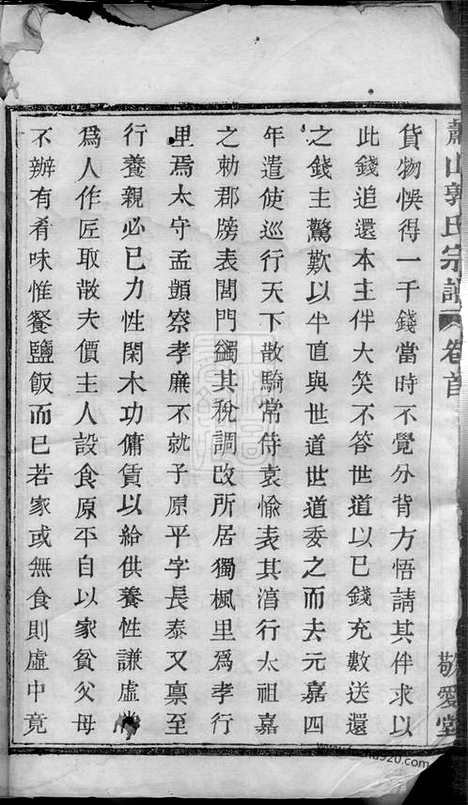 蕭山郭氏宗譜 卷首
敬愛堂
貨物悞得一千錢當時不覺分背方悟請其伴求以
此錢追還本主伴大笑不答世道以已錢充數送還
之錢主驚歎以半直與世道世道委之而去元嘉四
年遣使巡行天下散騎常侍袁愉表其湻行太祖嘉
之勅郡牓表閭門蠲其稅調改所居獨楓里爲孝行
里焉太守孟顗察孝廉不就子原平字長泰又稟至
行養親必已力性閑木功傭賃以給供養性謙虛
爲人作匠取散夫價主人設食原平自以家貧父母
不辦有肴味惟餐鹽飯而已若家或無食則虛中竟